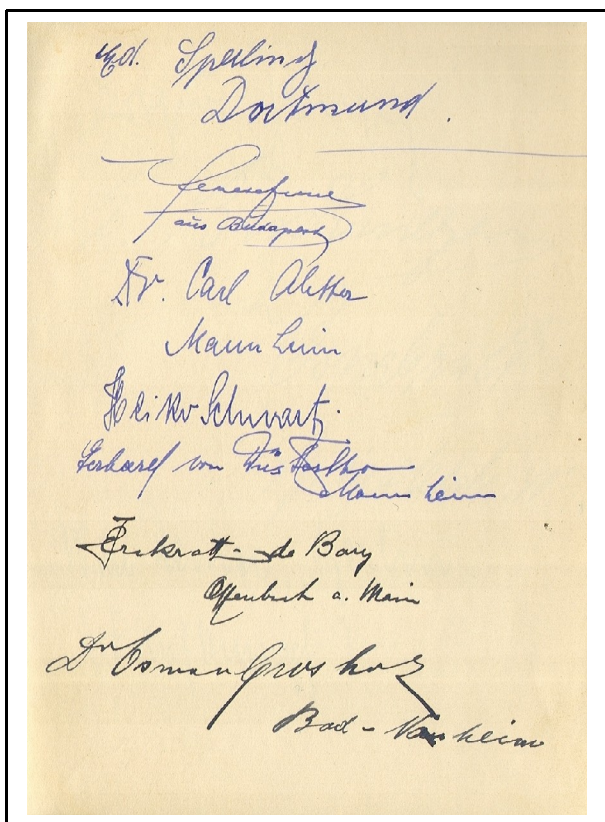 Ed. Sperling
Dortmund.
aus Budapest
Dr. Carl Aletter
Mannheim
Heiko Schwartz.
Gerhard von
Mannheim
de Bary
Offenbach a. Main
Dr Osman Grosholz
Bad-Nauheim